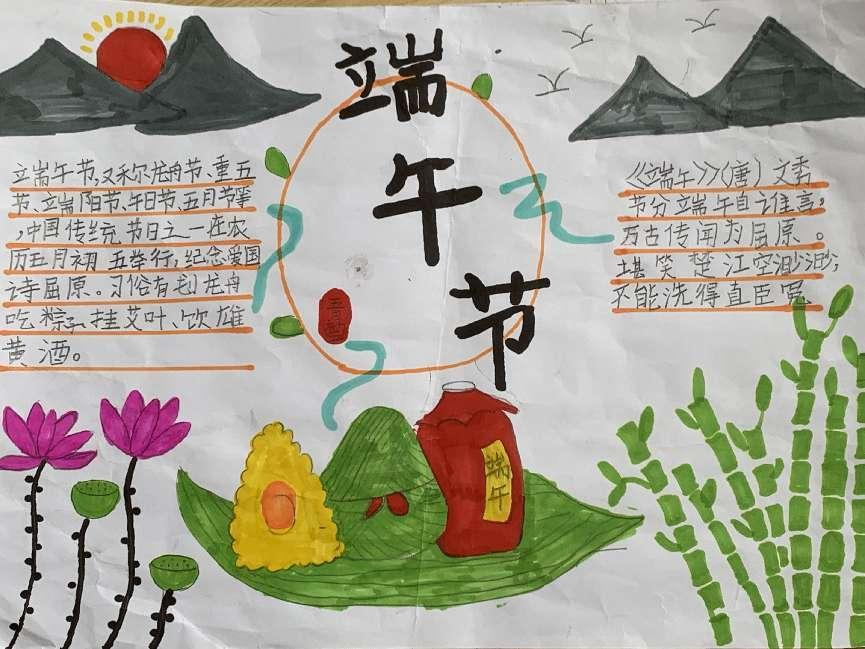 端
午
节
端午节,又称龙舟节、重五
节、端阳节、午日节、五月节等
,中国传统节日之一在农
历五月初五举行,纪念爱国
诗屈原。习俗有划龙舟
吃粽子、挂艾叶、饮雄
黄酒。
《端午》(唐)文秀
节分端午自谁言,
万古传闻为屈原。
堪笑楚江空渺渺,
不能洗得直臣冤
端
午